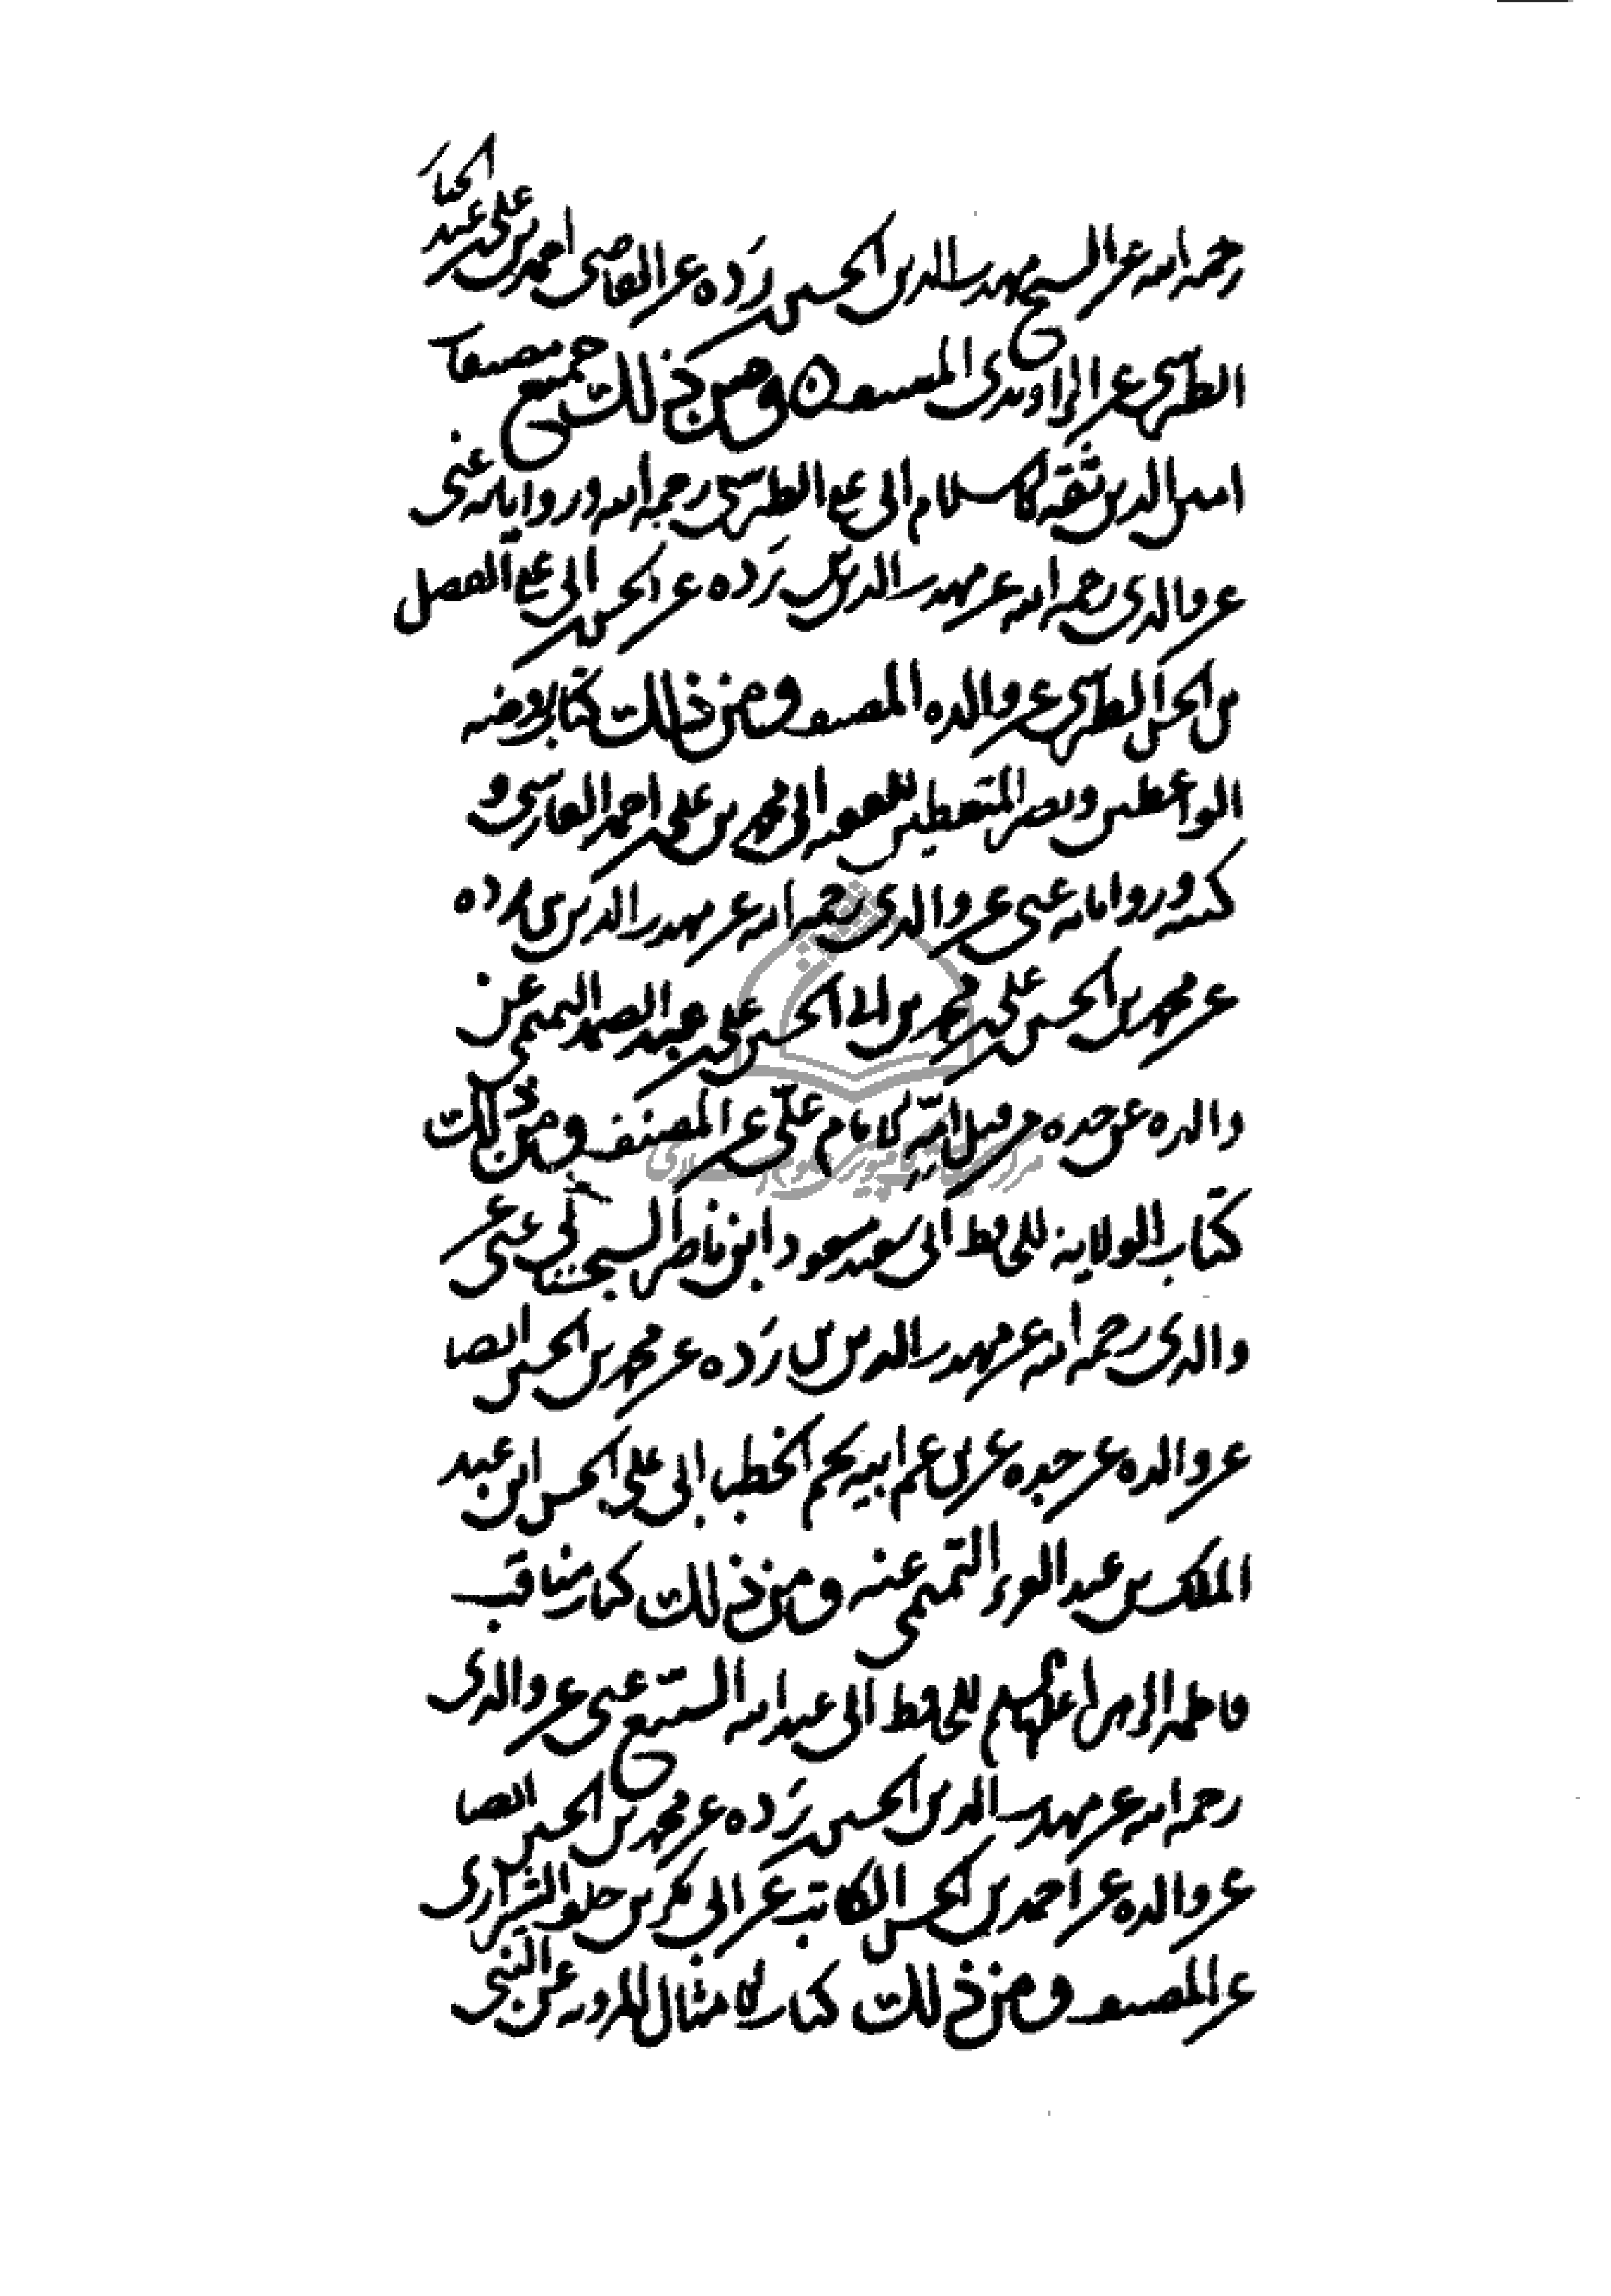 رحمه الله عن الشيخ مهذب الدين الحسين بن رده عن القاضي احمد بن علي بن عبد الجبار
الطبرسي عن الراوندي المصنف ومن ذلك جميع مصنفات
امين الدين ثقة الاسلام ابي علي الطبرسي رحمه الله ورواياته عني
عن والدي رحمه الله عن مهذب الدين بن رده عن الحسن بن ابي علي الفضل
بن الحسن الطبرسي عن والده المصنف ومن ذلك كتاب روضة
الواعظين وتبصرة المتعظين للفقيه ابي محمد بن علي بن احمد الفارسي و
كتبه ورواياته عني عن والدي رحمه الله عن مهذب الدين بن رده
عن محمد بن الحسن بن علي بن محمد بن ابي الحسن علي بن عبد الصمد التميمي عن
والده عن جده من قبل امه الامام علي عن المصنف ومن ذلك
كتاب الولاية للحافظ ابي سعيد مسعود ابن ناصر السجستاني عني عن
والدي رحمه الله عن مهذب الدين بن رده عن محمد بن الحسن ايضا
عن والده عن جده عن بن عم ابيه الخطيب ابي علي الحسن ابن عبد
الملك بن عبد العزيز التميمي عنه ومن ذلك كتاب مناقب
فاطمة الزهراء عليها السلم للحافظ ابي عبد الله البيع عني عن والدي
رحمه الله عن مهذب الدين الحسين بن رده عن محمد بن الحسن ايضا
عن والده عن احمد بن الحسن الكاتب عن ابي بكر بن خلف الشيرازي
عن المصنف ومن ذلك كتاب الامثال المروية عن النبي